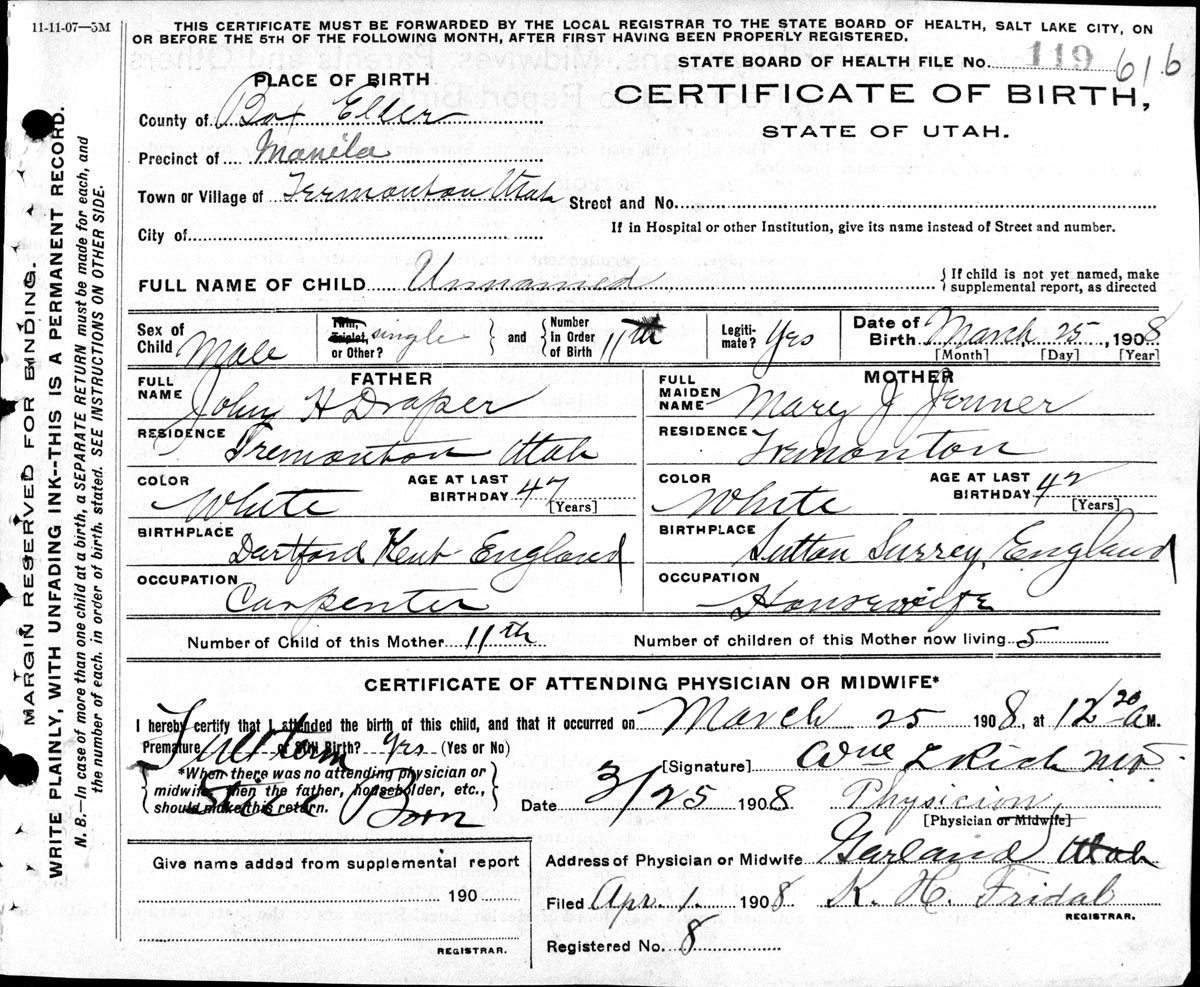 11-11-07—5M
THIS CERTIFICATE MUST BE FORWARDED BY THE LOCAL REGISTRAR TO THE STATE BOARD OF HEALTH, SALT LAKE CITY, ON
OR BEFORE THE 5TH OF THE FOLLOWING MONTH, AFTER FIRST HAVING BEEN PROPERLY REGISTERED.
STATE BOARD OF HEALTH FILE No. 119 616
PLACE OF BIRTH
CERTIFICATE OF BIRTH,
STATE OF UTAH.
County of Box Elder
Precinct of Manila
Town or Village of Termonton Utah Street and No.
City of
If in Hospital or other Institution, give its name instead of Street and number.
FULL NAME OF CHILD Unnamed
If child is not yet named, make
supplemental report, as directed
Sex of Child Male
Twin, Triplet, or Other? single and
Number In Order of Birth 11th
Legiti-mate? Yes
Date of Birth March 25, 1908
[Month] [Day] [Year]
FATHER
FULL NAME John H Draper
RESIDENCE Tremonton Utah
COLOR White AGE AT LAST BIRTHDAY 47 [Years]
BIRTHPLACE Dartford Kent England
OCCUPATION Carpenter
MOTHER
FULL MAIDEN NAME Mary J Jenner
RESIDENCE Tremonton
COLOR White AGE AT LAST BIRTHDAY 42 [Years]
BIRTHPLACE Sutton Surrey, England
OCCUPATION Housewife
Number of Child of this Mother 11th Number of children of this Mother now living 5
CERTIFICATE OF ATTENDING PHYSICIAN OR MIDWIFE*
I hereby certify that I attended the birth of this child, and that it occurred on March 25 1908, at 12 20 A M.
Premature or Still Birth? yrs (Yes or No)
Full term
Live Born
*When there was no attending physician or
midwife, then the father, householder, etc.,
should make this return.
[Signature] Wm L Rich MD
Date 3/25 1908 Physician,
[Physician or Midwife]
Address of Physician or Midwife Garland Utah
Filed Apr. 1. 1908 K. H. Fridal
REGISTRAR.
Registered No. 8
Give name added from supplemental report
190
REGISTRAR.
MARGIN RESERVED FOR BINDING.
WRITE PLAINLY, WITH UNFADING INK--THIS IS A PERMANENT RECORD.
N. B.—In case of more than one child at a birth, a SEPARATE RETURN must be made for each, and
the number of each, in order of birth, stated. SEE INSTRUCTIONS ON OTHER SIDE.